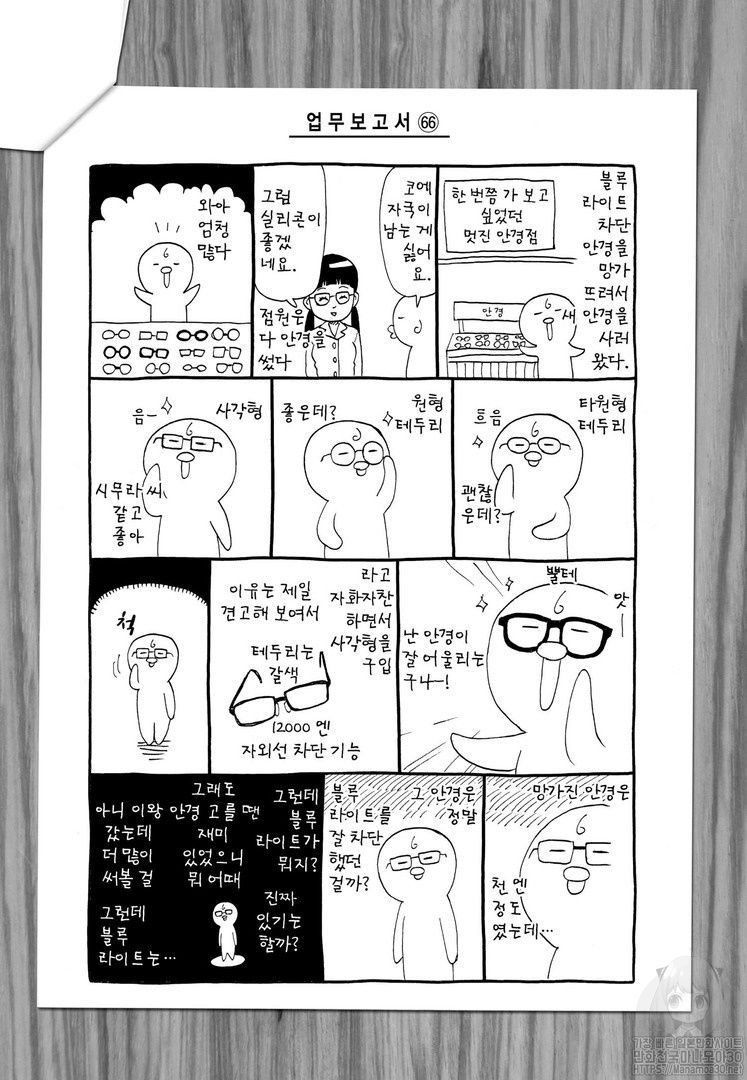 업무보고서 66
블루
라이트
차단
안경을
망가
뜨려서
안경을
사러
왔다.
한 번쯤 가 보고
싶었던
멋진 안경점
안경
새
코에
자국이
남는 게
싫어
요.
그럼
실리콘이
좋겠
네요.
점원은
다 안경을
썼다
와아
엄청
많다
타원형
테두리
흐음
괜찮
은데?
원형
테두리
좋은데?
사각형
음ー
시무라 씨
같고
좋아
뿔테
앗ー
난 안경이
잘 어울리는
구나ー!
라고
자화자찬
하면서
사각형을
구입
이유는 제일
견고해 보여서
테두리는
갈색
12000 엔
자외선 차단 기능
척
망가진 안경은
천 엔
정도
였는데…
그 안경은
정말
블루
라이트를
잘 차단
했던
걸까?
그런데
블루
라이트가
뭐지?
진짜
있기는
할까?
그래도
안경 고를 땐
재미
있었으니
뭐 어때
아니 이왕
갔는데
더 많이
써볼 걸
그런데
블루
라이트는…
가장 빠른 일본만화사이트
만화천국 마나모아30
HTTPS://Manamoa30.net